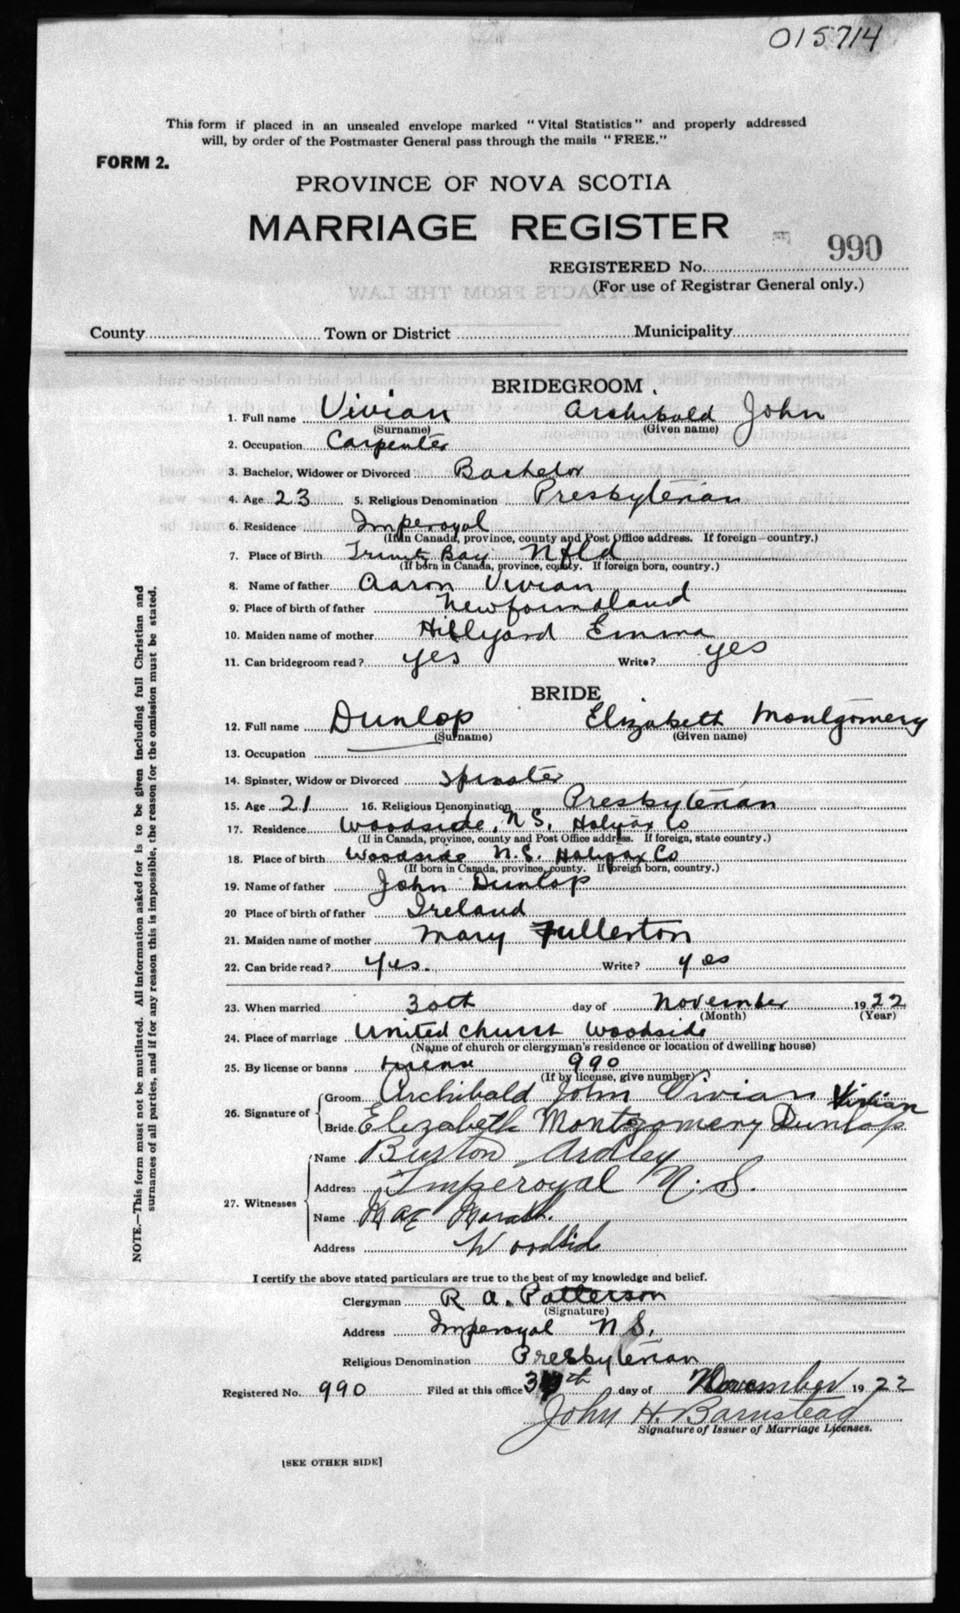 015714
This form if placed in an unsealed envelope marked "Vital Statistics" and properly addressed
will, by order of the Postmaster General pass through the mails "FREE."
FORM 2.
PROVINCE OF NOVA SCOTIA
MARRIAGE REGISTER
990
REGISTERED No.
(For use of Registrar General only.)
County Town or District Municipality
BRIDEGROOM.
1. Full name Vivian Archibald John
(Surname) (Given name)
2. Occupation Carpenter
3. Bachelor, Widower or Divorced Bachelor
4. Age 23 5. Religious Denomination Presbyterian
6. Residence Imperoyal
(If in Canada, province, county and Post Office address. If foreign country.)
7. Place of Birth Trinity Bay Nfld
(If born in Canada, province, county. If foreign born, country.)
8. Name of father Aaron Vivian
9. Place of birth of father Newfoundland
10. Maiden name of mother Hillyard Emma
11. Can bridegroom read? yes Write? yes
BRIDE
12. Full name Dunlop Elizabeth Montgomery
(Surname) (Given name)
13. Occupation
14. Spinster, Widow or Divorced Spinster
15. Age 21 16. Religious Denomination Presbyterian
17. Residence Woodside, N.S. Halifax Co
(If in Canada, province, county and Post Office address. If foreign, state country.)
18. Place of birth Woodside N.S. Halifax Co
(If born in Canada, province, county. If foreign born, country.)
19. Name of father John Dunlop
20 Place of birth of father Ireland
21. Maiden name of mother Mary Fullerton
22. Can bride read? Yes. Write? yes
23. When married 30th day of November 1922
(Month) (Year)
24. Place of marriage United Church Woodside
(Name of church or clergyman's residence or location of dwelling house)
25. By license or banns 990
(If by license, give number)
26. Signature of Groom Archibald John Vivian Vivian
Bride Elizabeth Montgomery Dunlop
27. Witnesses
Name Burton Ardley
Address Imperoyal N.S.
Name Mae
Address Woodside
I certify the above stated particulars are true to the best of my knowledge and belief.
Clergyman R. A. Patterson
(Signature)
Address Imperoyal N.S.
Religious Denomination Presbyterian
Registered No. 990 Filed at this office day of November 1922
John H. Barnstead
Signature of Issuer of Marriage Licenses.
[SEE OTHER SIDE]
NOTE.—This form must not be mutilated. All information asked for is to be given including full Christian and
surnames of all parties, and if for any reason this is impossible, the reason for the omission must be stated.